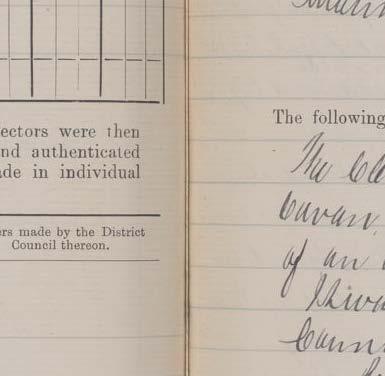 ectors were then
nd authenticated
de in individual
ers made by the District
Council thereon.
The following
The Cle
Cavan,
of an